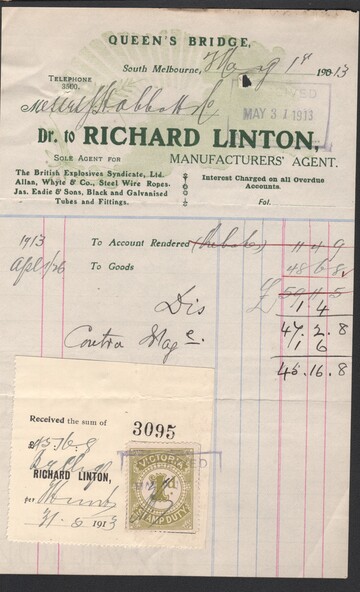 QUEEN'S BRIDGE,
South Melbourne, May 1st 1913
TELEPHONE
3500.
MAY 31 1913
Messrs
Dr. to RICHARD LINTON,
SOLE AGENT FOR MANUFACTURERS' AGENT.
The British Explosives Syndicate, Ltd.
Allan, Whyte & Co., Steel Wire Ropes.
Jas. Eadie & Sons, Black and Galvanised
Tubes and Fittings.
Interest Charged on all Overdue
Accounts.
Fol.
1913 To Account Rendered 11 4 9
Apl 1/26 To Goods 48 6 8
£ 59 11 5
Dis 1 4
47.2.8
Contra 1 6
45.16.8
Received the sum of
3095
£45.16.8
RICHARD LINTON,
per
31-5 1913
VICTORIA
1d
STAMP DUTY